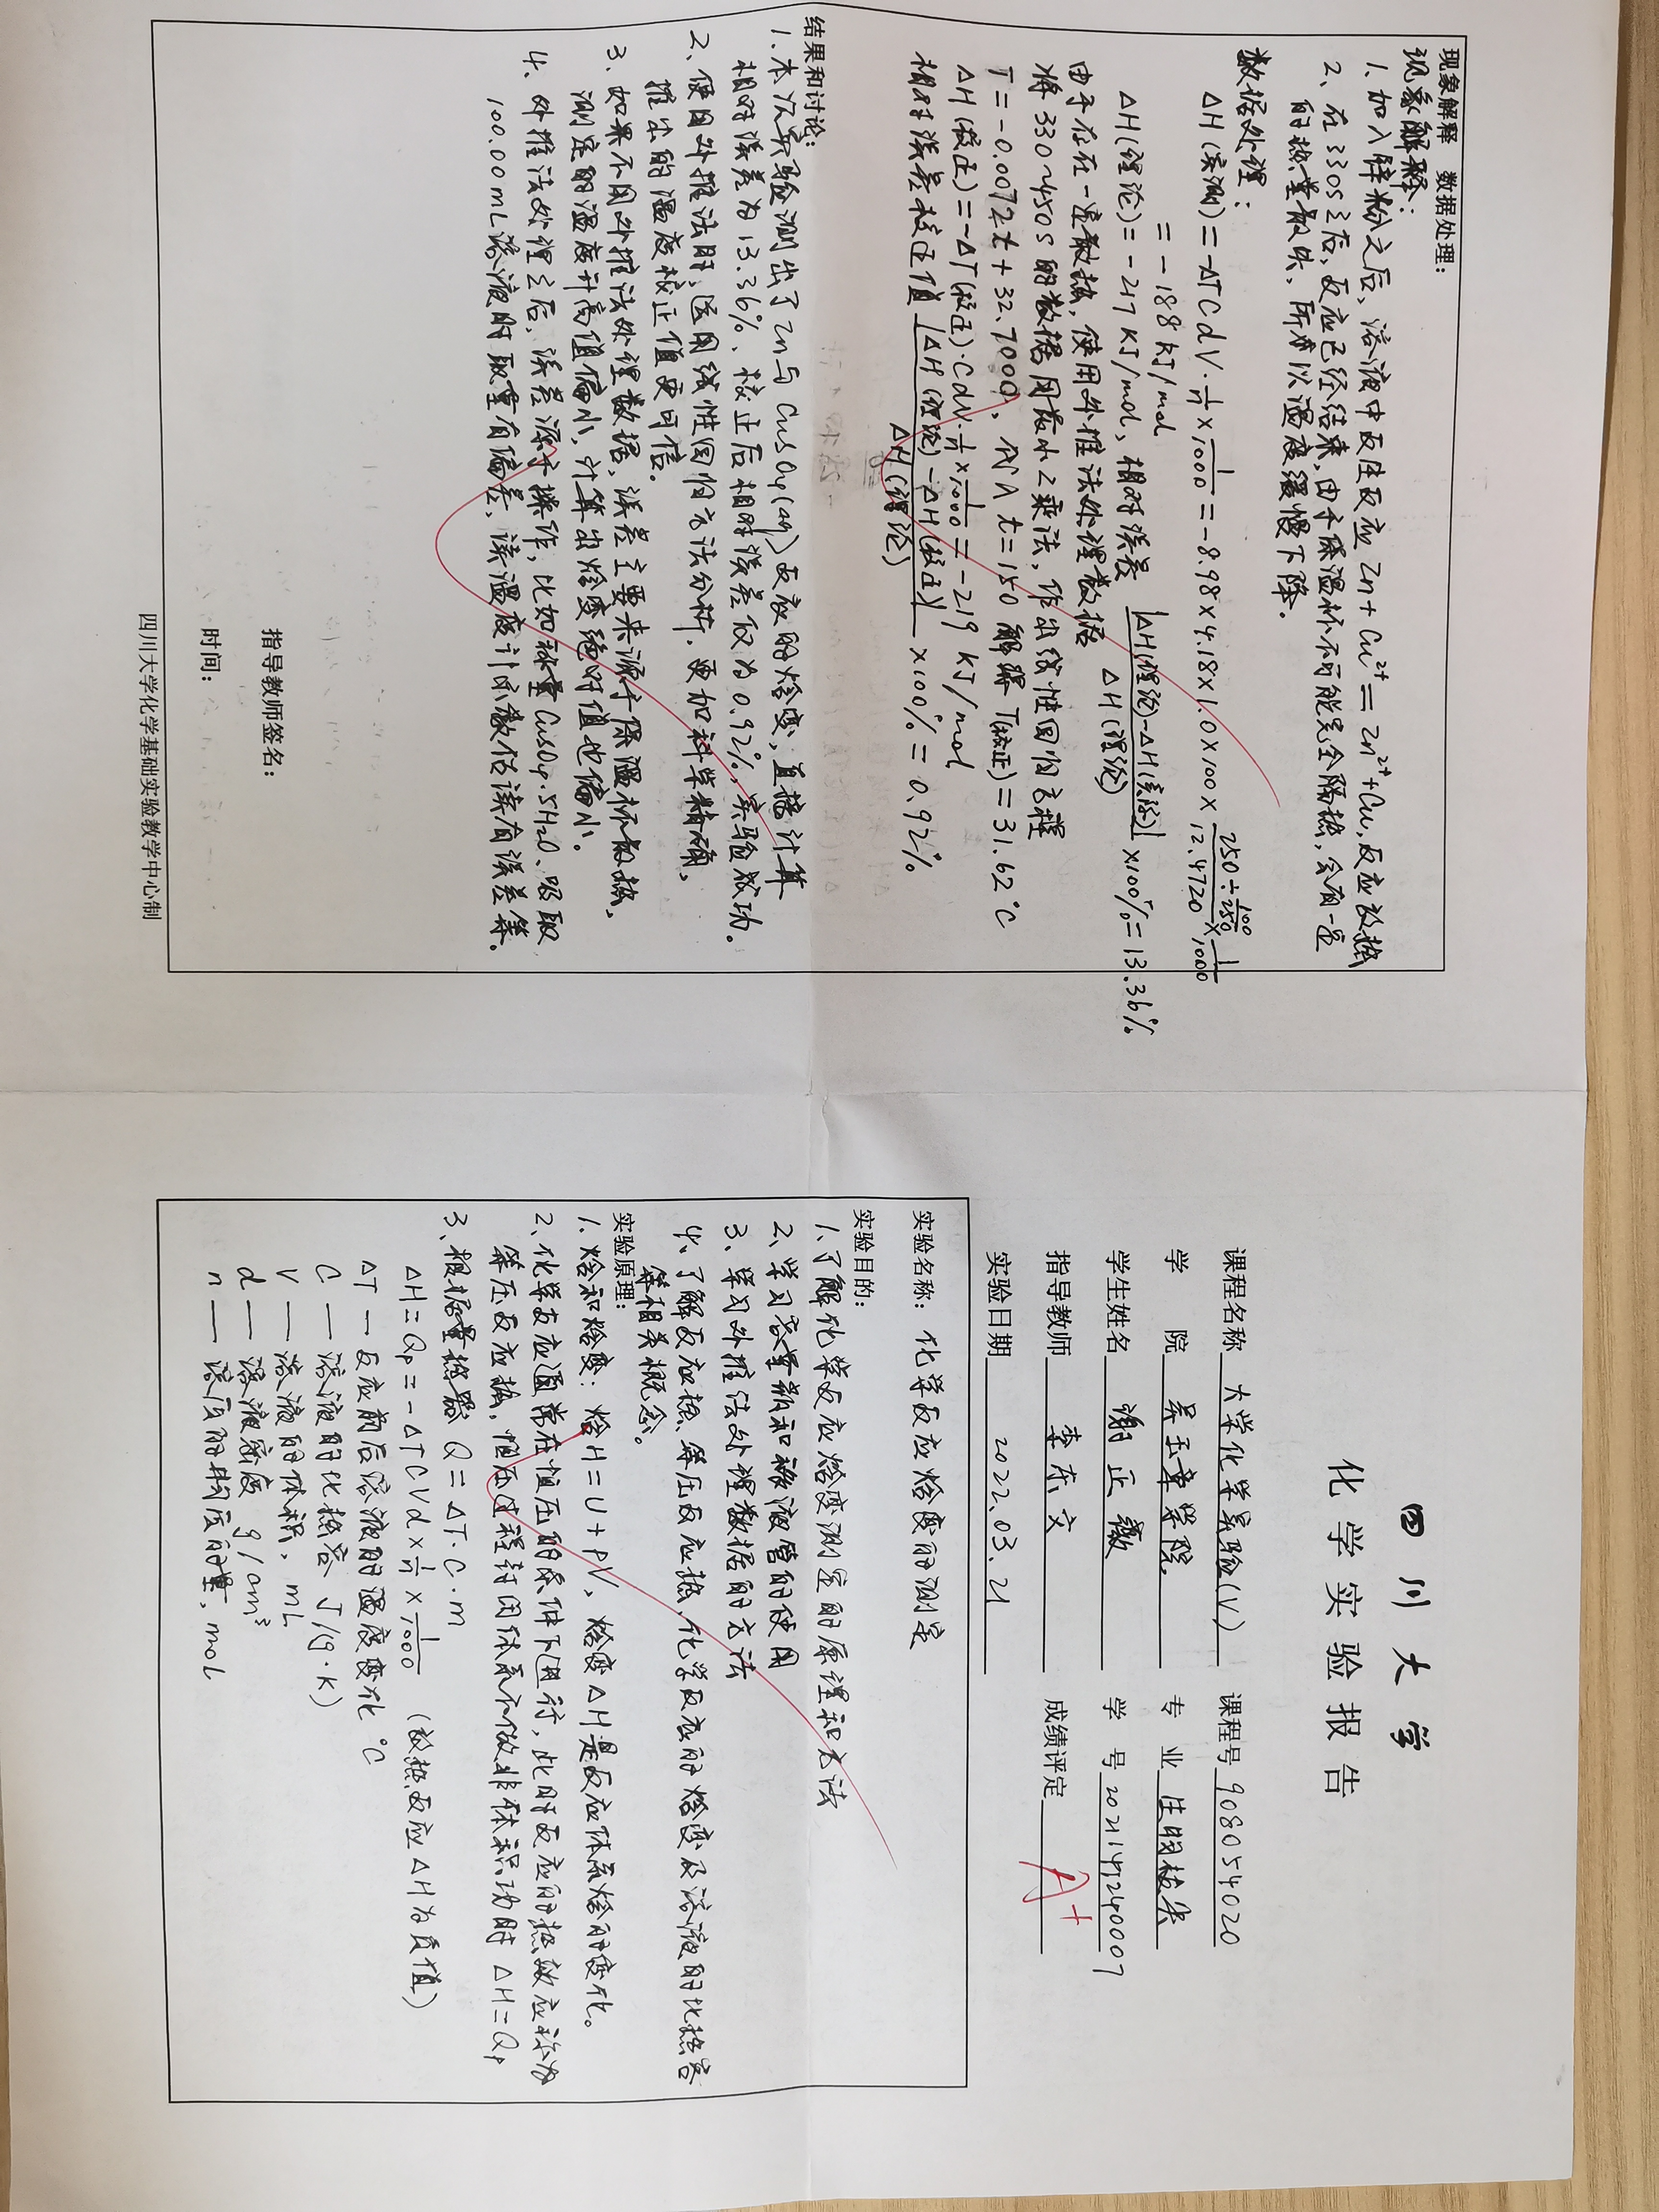 四川大学
化学实验报告
课程名称 大学化学实验(V) 课程号 908054020
学 院 吴玉章学院 专 业 生明拔尖
学生姓名 谢正 学 号 2021141240007
指导教师 李东文 成绩评定 A+
实验日期 2022.03.21
实验名称: 化学反应焓变的测定
实验目的:
1、了解化学反应焓变测定的原理和方法
2、学习容量瓶和移液管的使用
3、学习外推法处理数据的方法
4、了解反应热、等压反应热、化学反应的焓变及溶液的比热容
等相关概念。
实验原理:
1、焓和焓变: 焓H=U+pV, 焓变ΔH是反应体系焓的变化。
2、化学反应通常在恒压的条件下进行, 此时反应的热效应称为
等压反应热, 恒压过程封闭体系不做非体积功时 ΔH=Qp
3、根据量热器 Q=ΔT·C·m
ΔH=Qp=-ΔTCVd×1/n×1/1000 (放热反应ΔH为负值)
ΔT — 反应前后溶液的温度变化 ℃
C — 溶液的比热容 J/(g·K)
V — 溶液的体积, mL
d — 溶液密度 g/cm³
n — 溶质的物质的量, mol
现象解释 数据处理:
现象解释:
1、加入锌粉之后, 溶液中发生反应 Zn+Cu²⁺=Zn²⁺+Cu, 反应放热
2、在330s之后, 反应已经结束, 由于保温杯不可能完全隔热, 会有一定
的热量散失, 所以温度缓慢下降.
数据处理:
ΔH(实测)=-ΔTCdV·1/n×1/1000=-8.98×4.18×1.0×100×250÷100/250/12.4720×1/1000
=-188 kJ/mol
ΔH(理论)=-217 kJ/mol, 相对误差 |ΔH(理论)-ΔH(实际)|/ΔH(理论)×100%=13.36%
由于存在一定散热, 使用外推法处理数据
将330~450s的数据用最小2乘法, 作出线性回归方程
T=-0.0072t+32.7000, 代入t=150 解得 T(校正)=31.62℃
ΔH(校正)=-ΔT(校正)·CdV·1/n×1/1000=-219 kJ/mol
相对误差校正值 |ΔH(理论)-ΔH(校正)|/ΔH(理论)×100%=0.92%
结果和讨论:
1、本次实验测出了Zn与CuSO₄(aq)反应的焓变, 直接计算
相对误差为13.36%、校正后相对误差仅为0.92%, 实验成功。
2、使用外推法时, 运用线性回归方法分析, 更加科学精确,
推出的温度校正值更可信。
3、如果不用外推法处理数据, 误差主要来源于保温杯散热,
测定的温度升高值偏小, 计算出焓变绝对值也偏小。
4、外推法处理之后, 误差源于操作, 比如称量CuSO₄·5H₂O、吸取
100.00mL溶液时取量有偏差, 读温度计示数估读有误差等.
指导教师签名:
时间:
四川大学化学基础实验教学中心制